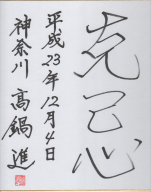 克己心
平成23年12月4日
神奈川 高鍋 進